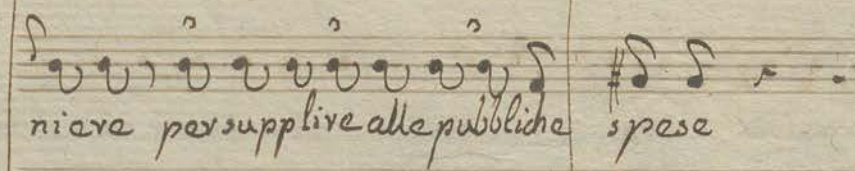 niere per supplire alle pubbliche spese